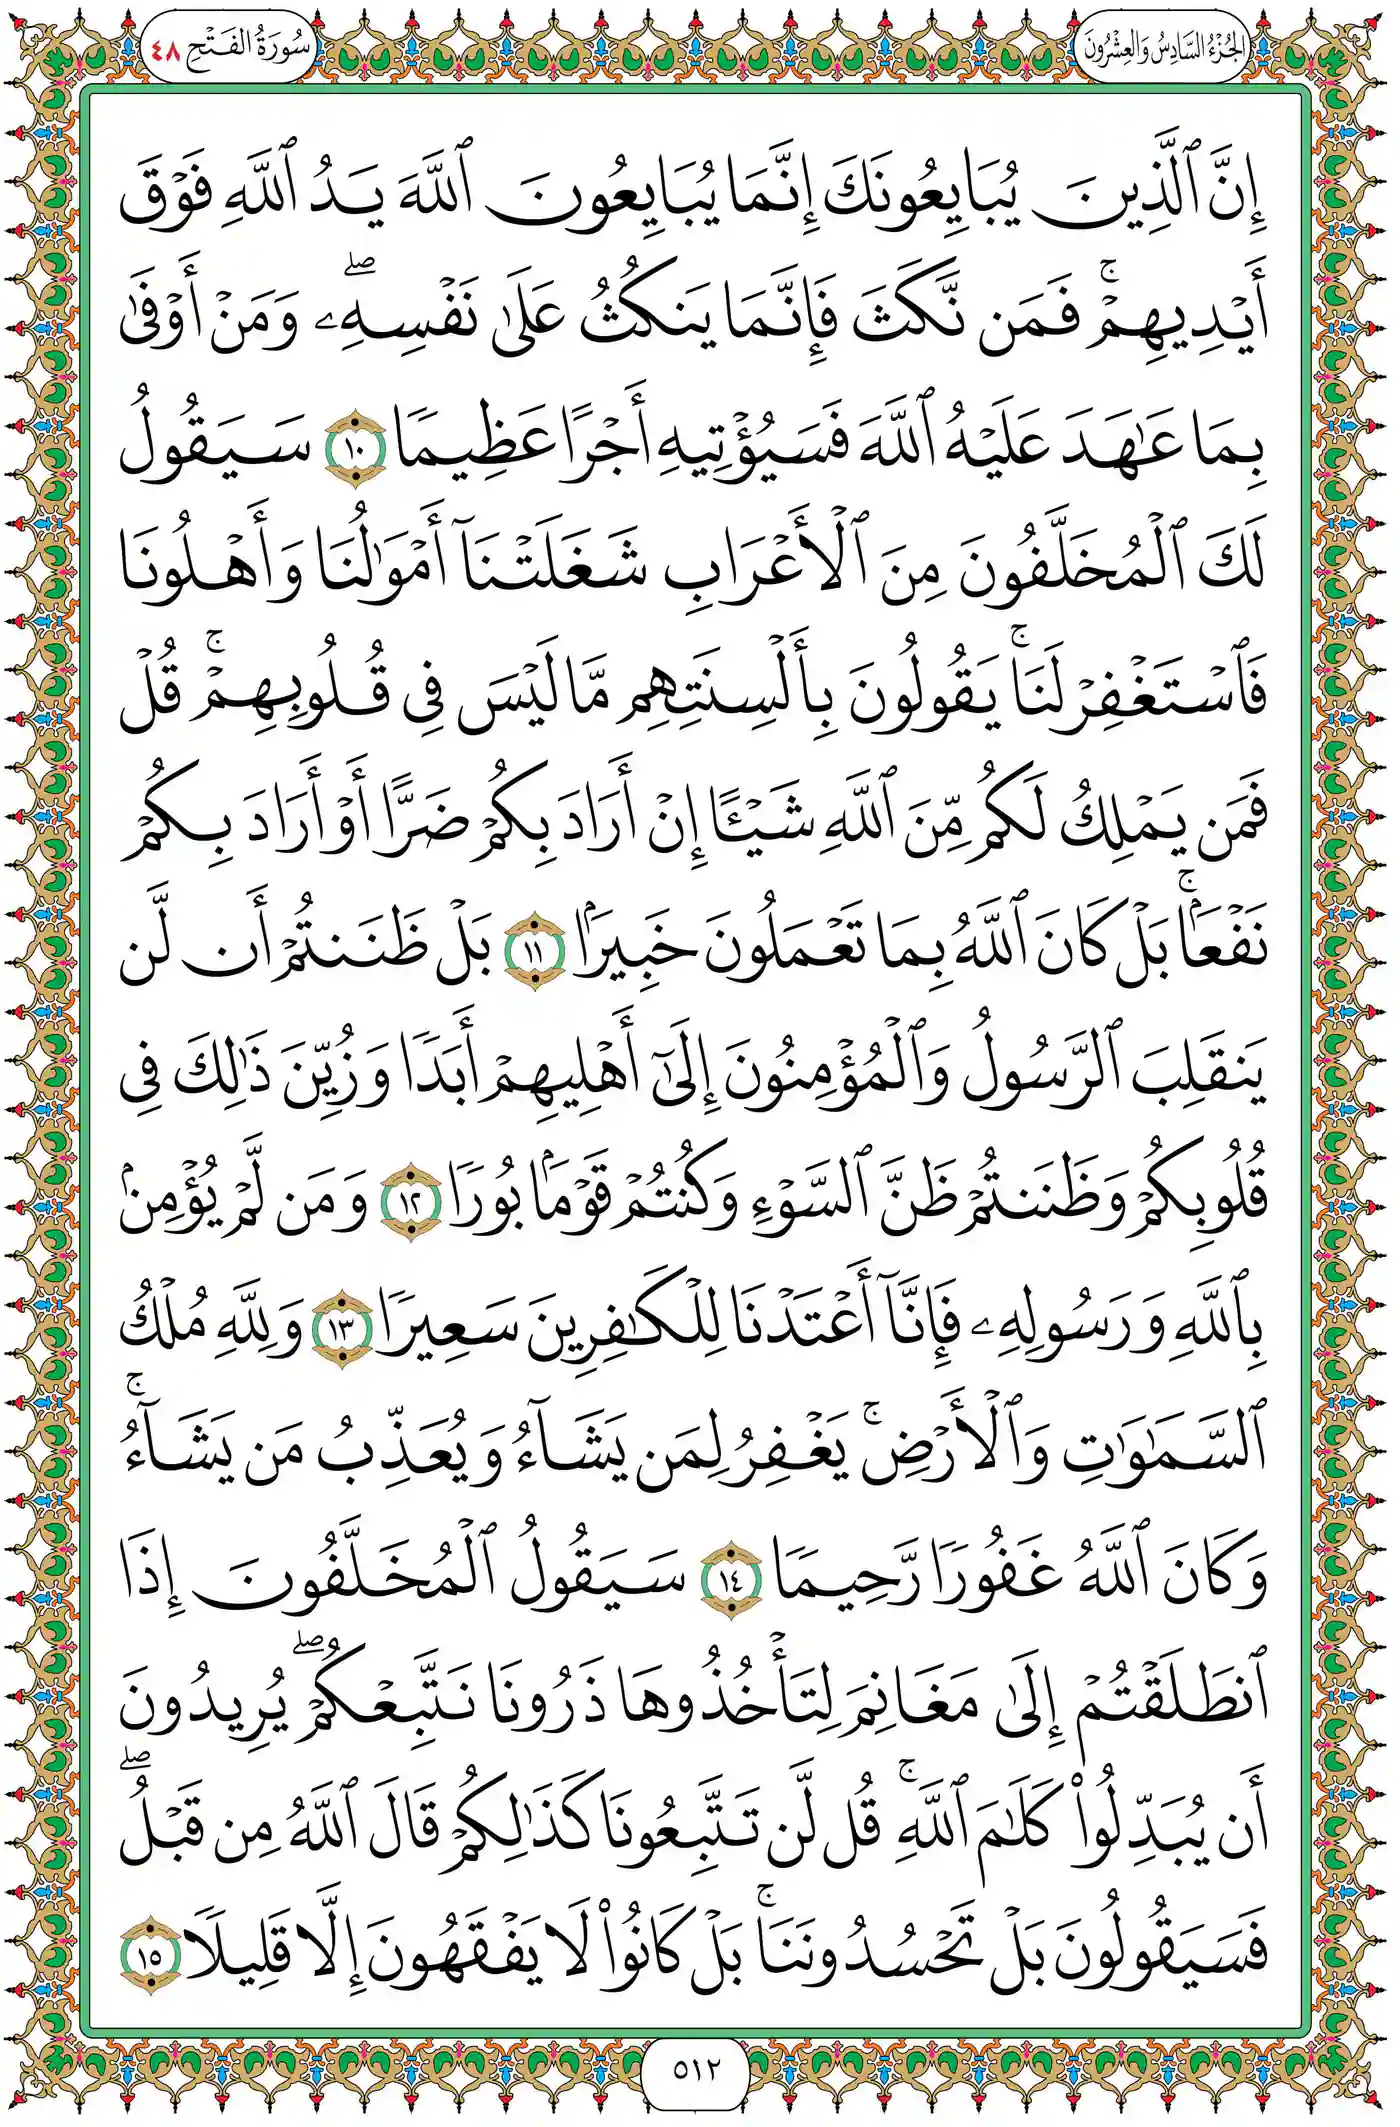 الجُزْءُ السَّادِسُ وَالعِشْرُونَ
سُورَةُ الفَتْحِ ٤٨
إِنَّ ٱلَّذِينَ يُبَايِعُونَكَ إِنَّمَا يُبَايِعُونَ ٱللَّهَ يَدُ ٱللَّهِ فَوْقَ
أَيْدِيهِمْۚ فَمَن نَّكَثَ فَإِنَّمَا يَنكُثُ عَلَىٰ نَفْسِهِۦۖ وَمَنْ أَوْفَىٰ
بِمَا عَٰهَدَ عَلَيْهُ ٱللَّهَ فَسَيُؤْتِيهِ أَجْرًا عَظِيمًا ١٠ سَيَقُولُ
لَكَ ٱلْمُخَلَّفُونَ مِنَ ٱلْأَعْرَابِ شَغَلَتْنَآ أَمْوَٰلُنَا وَأَهْلُونَا
فَٱسْتَغْفِرْ لَنَاۚ يَقُولُونَ بِأَلْسِنَتِهِم مَّا لَيْسَ فِى قُلُوبِهِمْۚ قُلْ
فَمَن يَمْلِكُ لَكُم مِّنَ ٱللَّهِ شَيْـًٔا إِنْ أَرَادَ بِكُمْ ضَرًّا أَوْ أَرَادَ بِكُمْ
نَفْعَۢاۚ بَلْ كَانَ ٱللَّهُ بِمَا تَعْمَلُونَ خَبِيرَۢا ١١ بَلْ ظَنَنتُمْ أَن لَّن
يَنقَلِبَ ٱلرَّسُولُ وَٱلْمُؤْمِنُونَ إِلَىٰٓ أَهْلِيهِمْ أَبَدًا وَزُيِّنَ ذَٰلِكَ فِى
قُلُوبِكُمْ وَظَنَنتُمْ ظَنَّ ٱلسَّوْءِ وَكُنتُمْ قَوْمَۢا بُورًا ١٢ وَمَن لَّمْ يُؤْمِنۢ
بِٱللَّهِ وَرَسُولِهِۦ فَإِنَّآ أَعْتَدْنَا لِلْكَٰفِرِينَ سَعِيرًا ١٣ وَلِلَّهِ مُلْكُ
ٱلسَّمَٰوَٰتِ وَٱلْأَرْضِۚ يَغْفِرُ لِمَن يَشَآءُ وَيُعَذِّبُ مَن يَشَآءُۚ
وَكَانَ ٱللَّهُ غَفُورًا رَّحِيمًا ١٤ سَيَقُولُ ٱلْمُخَلَّفُونَ إِذَا
ٱنطَلَقْتُمْ إِلَىٰ مَغَانِمَ لِتَأْخُذُوهَا ذَرُونَا نَتَّبِعْكُمْۖ يُرِيدُونَ
أَن يُبَدِّلُوا۟ كَلَٰمَ ٱللَّهِۚ قُل لَّن تَتَّبِعُونَا كَذَٰلِكُمْ قَالَ ٱللَّهُ مِن قَبْلُۖ
فَسَيَقُولُونَ بَلْ تَحْسُدُونَنَاۚ بَلْ كَانُوا۟ لَا يَفْقَهُونَ إِلَّا قَلِيلًا ١٥
٥١٢